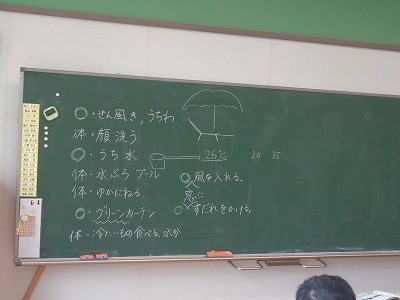 ◯・せん風き,うちわ
体・顔洗う
◯・うち水
26℃ 30 35
体・水ぶろ プール
◯風を入れる。
体・ゆかにねる
窓に
◯・グリーンカーテン
◯すだれをかける。
体・冷たいもの食べる、水分